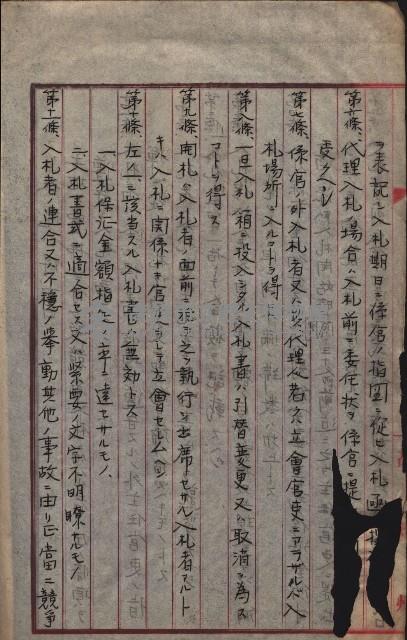 ヲ表記シ入札期日ニ係官ノ指図ニ従ヒ入札函ニ投
第六條、代理入札ノ場合ハ入札前ニ委任状ヲ係官ニ提
受クヘシ
第七條、係官ノ外入札者又ハ代理者又ハ立會官吏ニアラサレハ入
札場所ニ入ルコトヲ得
第八條、一旦入札箱ニ投入シタル入札書ハ引替變更又ハ取消ヲ為ス
コトヲ得ス
第九條、開札ハ入札者ノ面前ニ於テ之ヲ執行シ出席セサル入札者アルト
キハ入札ニ関係ナキ官吏ヲシテ立會セシム
第十條、左ノニ該当スル入札書ハ無効トス
一、入札保証金額指定ノ率ニ達セサルモノ、
二、入札書書式ニ適合セス又ハ緊要ノ文字不明瞭ナルモノ、
第十一條、入札者ノ連合又ハ不穏ノ挙動其他ノ事故ニ由リ正當ニ競争